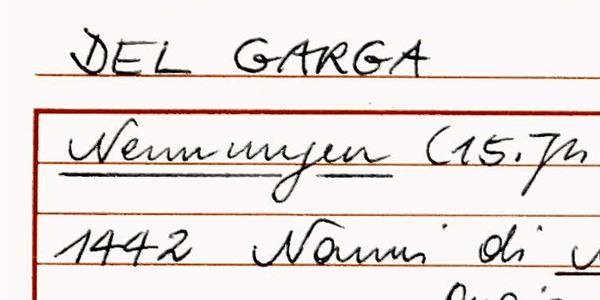 DEL GARGA
Nennungen (15. Jh
1442 Nanni di